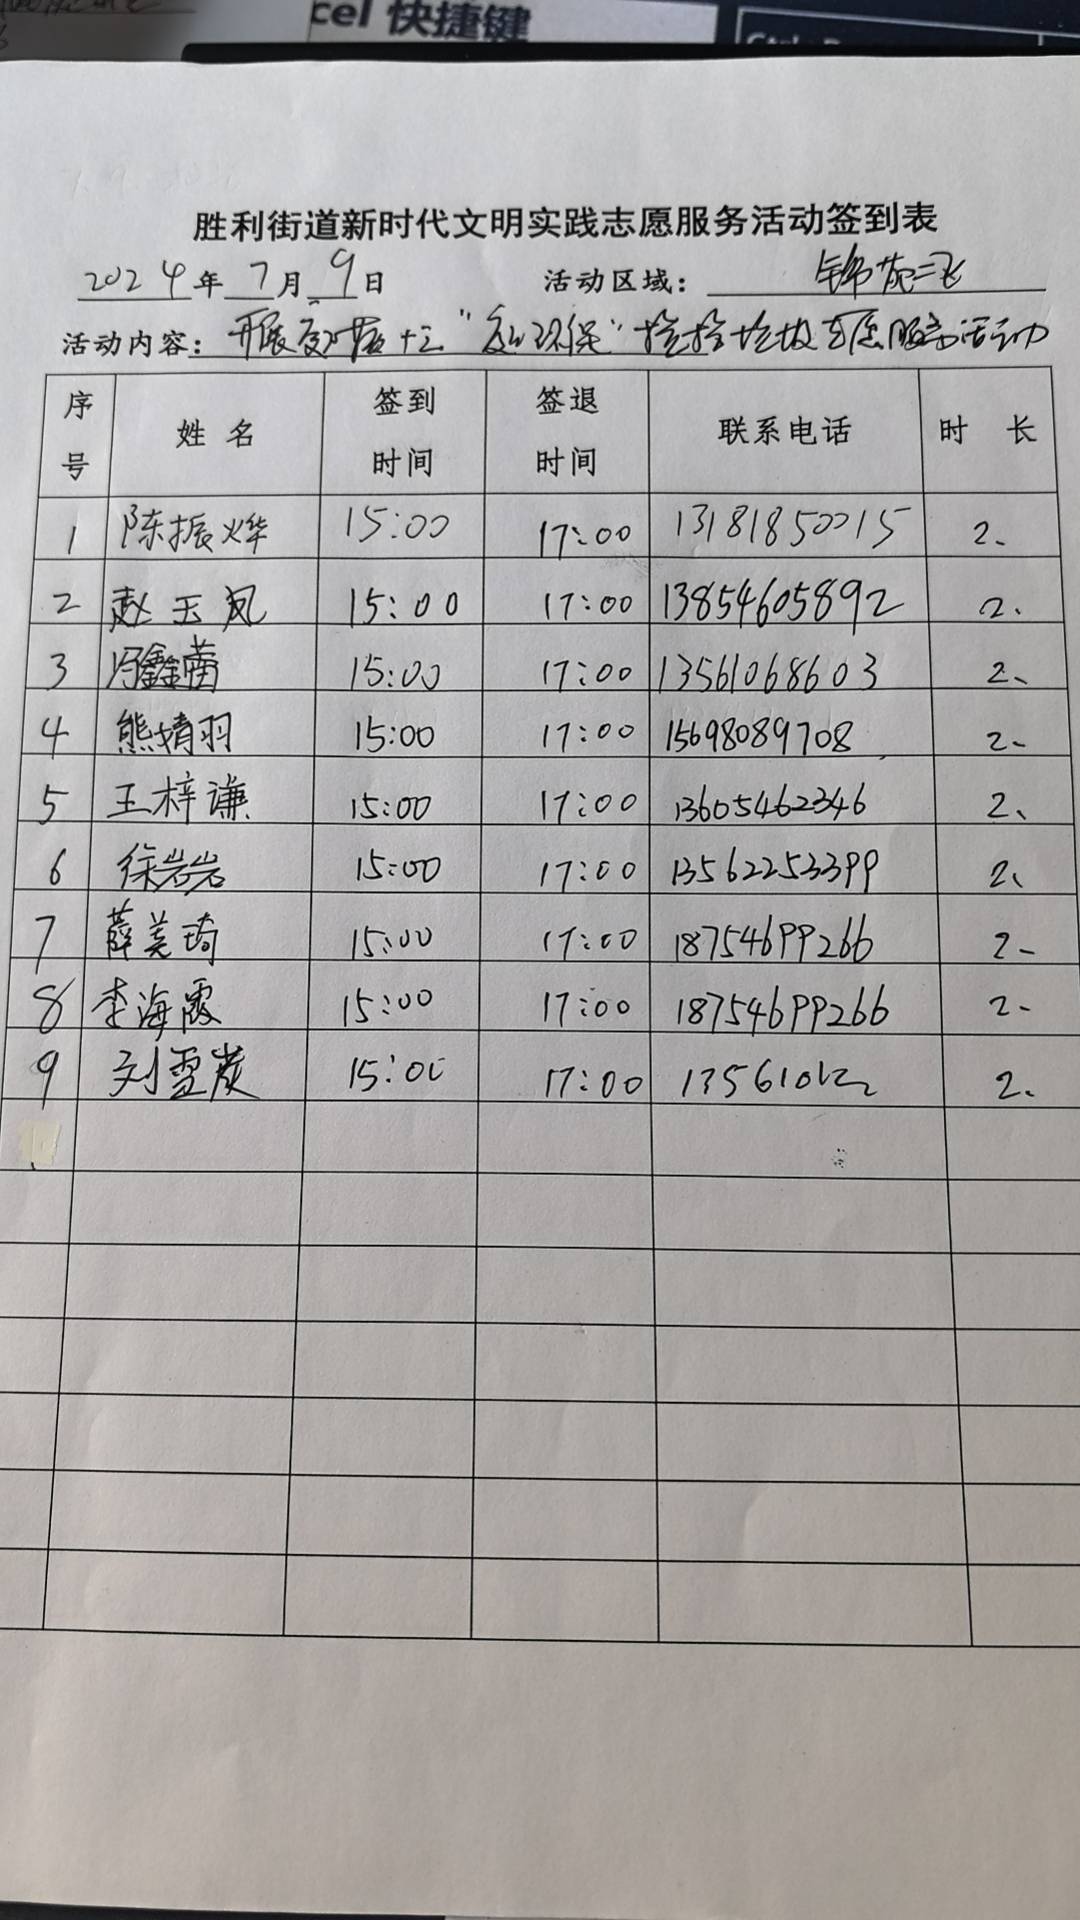 cel 快捷键
胜利街道新时代文明实践志愿服务活动签到表
2024年7月9日 活动区域：锦苑二飞
活动内容：开展 捡拾垃圾志愿服务活动
序号 姓名 签到时间 签退时间 联系电话 时长
1 陈振烨 15:00 17:00 13181850015 2.
2 赵玉凤 15:00 17:00 13854605892 2.
3 冯鑫蕾 15:00 17:00 13561068603 2、
4 熊婧羽 15:00 17:00 15698089708 2-
5 王梓谦 15:00 17:00 13605462346 2、
6 徐岩岩 15:00 17:00 13562253399 2、
7 薛美琦 15:00 17:00 18754699266 2-
8 李海霞 15:00 17:00 18754699266 2-
9 刘雪 15:00 17:00 2、